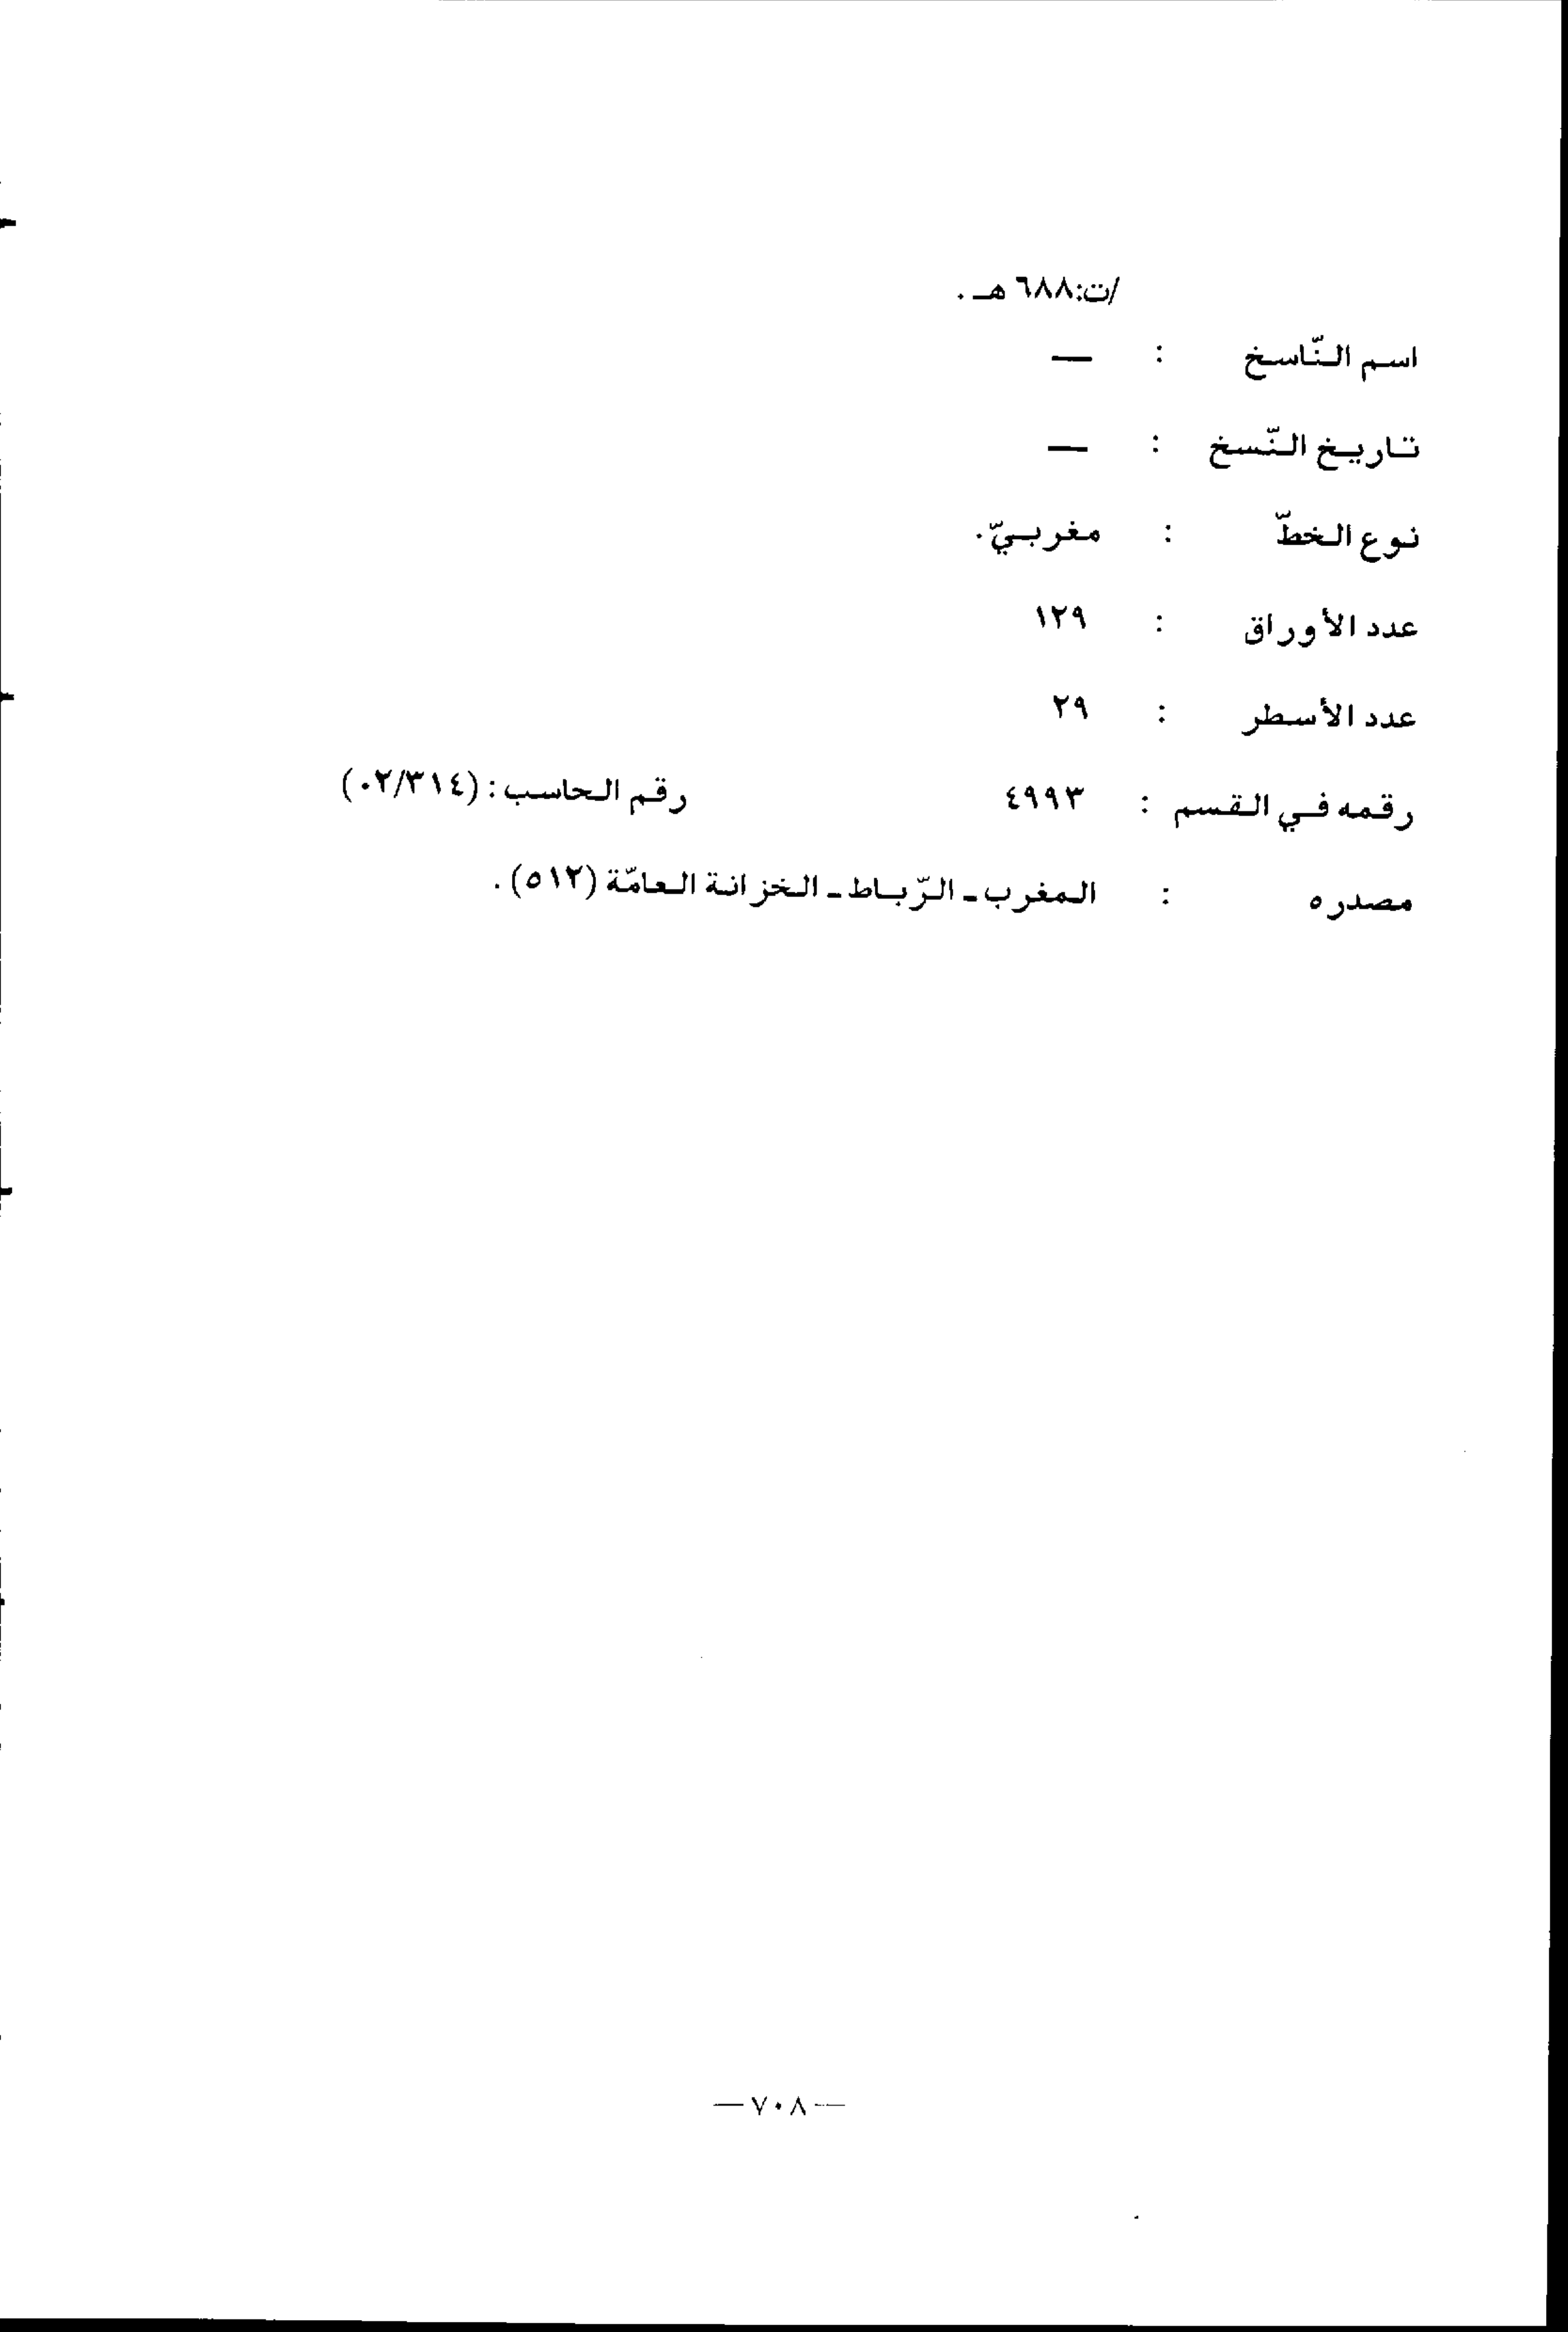 /ت:٦٨٨هـ .
اسم النّاسخ : —
تاريخ النّسخ : —
نوع الخطّ : مغربيّ.
عدد الأوراق : ١٢٩
عدد الأسطر : ٢٩
رقمه في القسم : ٤٩٩٣ رقم الحاسب : (٠٢/٣١٤)
مصدره : المغرب - الرّباط - الخزانة العامّة (٥١٢) .
— ٧٠٨ —